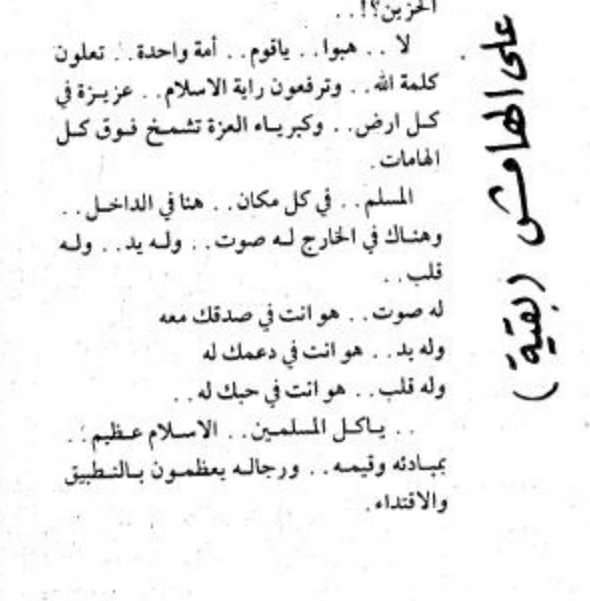 على الهامش (بقية)
الحزين؟! . .
لا . . هبوا . . ياقوم . . أمة واحدة . . تعلون
كلمة الله . . وترفعون راية الاسلام . . عزيزة في
كل ارض . . وكبرياء العزة تشمخ فوق كل
الهامات .
المسلم . . في كل مكان . . هنا في الداخل . .
وهناك في الخارج له صوت . . وله يد . . وله
قلب . .
له صوت . . هو انت في صدقك معه
وله يد . . هو انت في دعمك له
وله قلب . . هو انت في حبك له . .
. . ياكل المسلمين . . الاسلام عظيم . .
بمبادئه وقيمه . . ورجاله يعظمون بالتطبيق
والاقتداء .